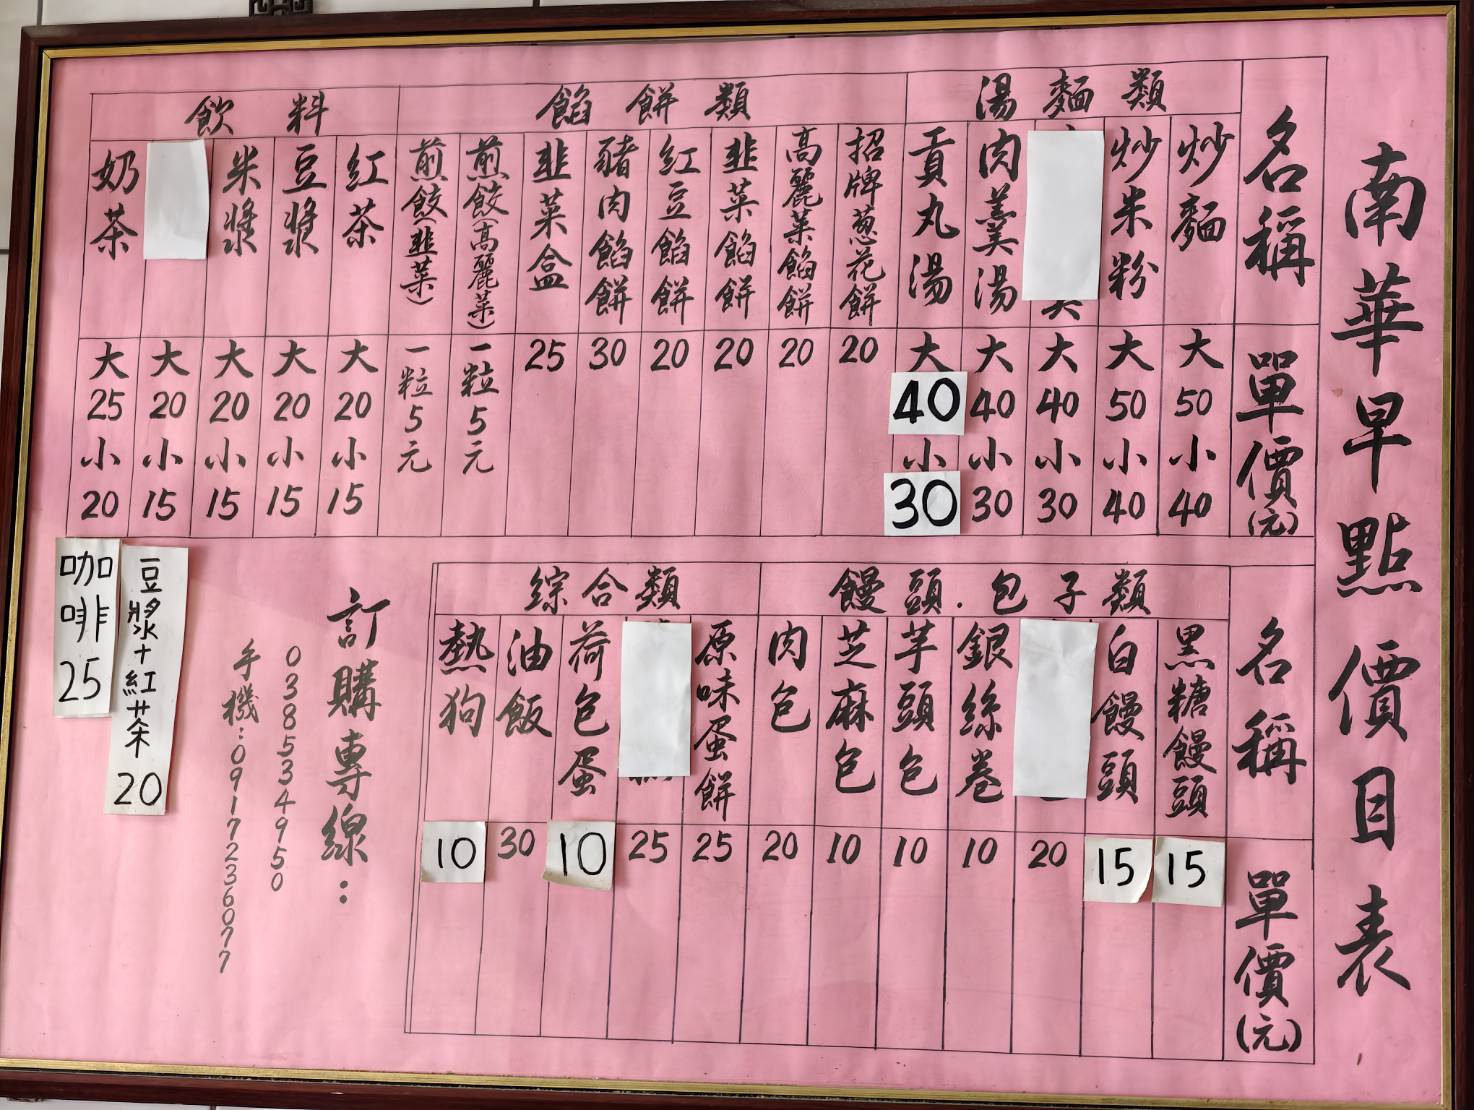 南華早點價目表
名稱
單價(元)
湯麵類
炒麵 大50小40
炒米粉 大50小40
大40小30
肉羹湯 大40小30
貢丸湯 大40小30
餡餅類
招牌蔥花餅 20
高麗菜餡餅 20
韭菜餡餅 20
紅豆餡餅 20
豬肉餡餅 30
韭菜盒 25
煎餃(高麗菜) 一粒5元
煎餃(韭菜) 一粒5元
飲料
紅茶 大20小15
豆漿 大20小15
米漿 大20小15
大20小15
奶茶 大25小20
名稱
單價(元)
饅頭.包子類
黑糖饅頭 15
白饅頭 15
20
銀絲卷 10
芋頭包 10
芝麻包 10
肉包 20
綜合類
原味蛋餅 25
25
荷包蛋 10
油飯 30
熱狗 10
訂購專線：
038534950
手機:0917236077
豆漿+紅茶 20
咖啡 25